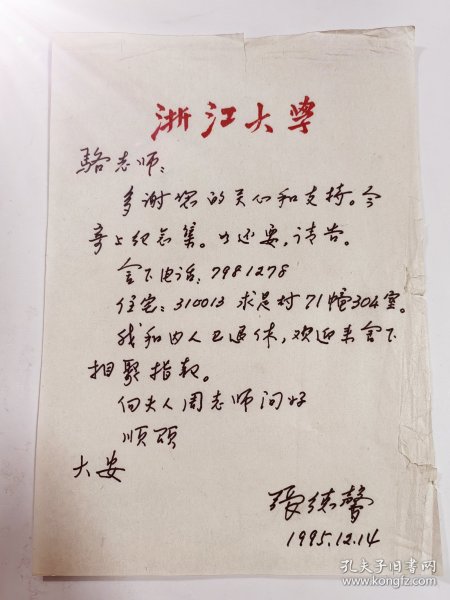 浙江大学
骆老师:
多谢您的关心和支持。今
寄上纪念集。如还要,请告。
舍下电话:7981278
住宅:310013 求是村71幢304室。
我和内人已退休,欢迎来舍下
相聚指教。
向夫人周老师问好
顺颂
大安
张德馨
1995.12.14
孔夫子旧书网
www.kongfz.com